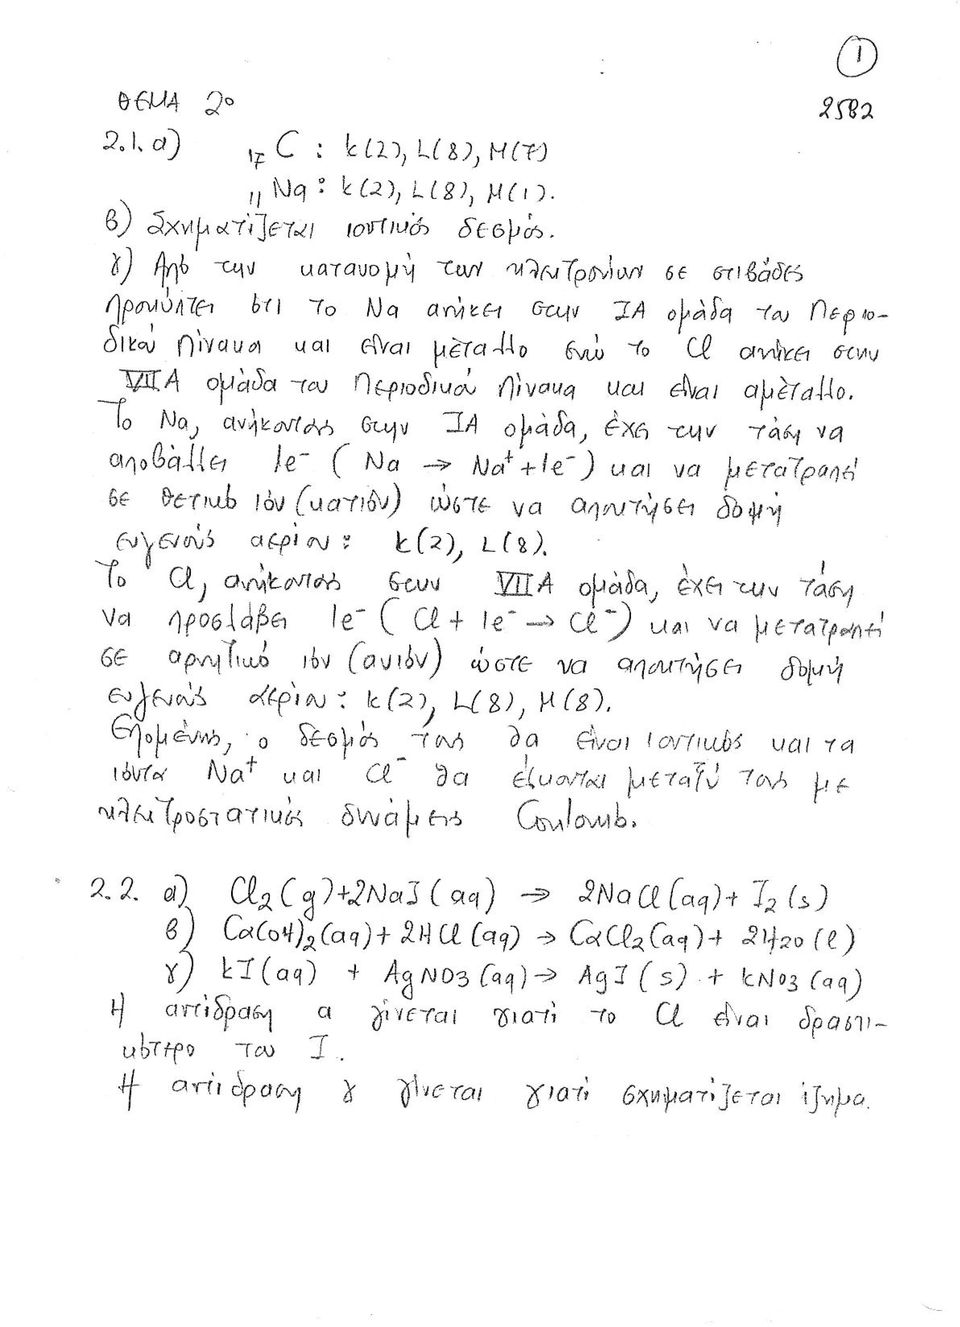 1
ΘΕΜΑ 2ο
2582
2.1. α) 17C : K(2), L(8), M(7)
11Na : K(2), L(8), M(1).
β) Σχηματίζεται ιοντικός δεσμός.
γ) Από την κατανομή των ηλεκτρονίων σε στιβάδες
προκύπτει ότι το Na ανήκει στην IA ομάδα του Περιο-
δικού Πίνακα και είναι μέταλλο ενώ το Cl ανήκει στην
VIIA ομάδα του Περιοδικού Πίνακα και είναι αμέταλλο.
Το Na, ανήκοντας στην IA ομάδα, έχει την τάση να
αποβάλλει 1e⁻ ( Na → Na⁺ + 1e⁻ ) και να μετατραπεί
σε θετικό ιόν (κατιόν) ώστε να αποκτήσει δομή
ευγενούς αερίου : K(2), L(8).
Το Cl, ανήκοντας στην VIIA ομάδα, έχει την τάση
να προσλάβει 1e⁻ ( Cl + 1e⁻ → Cl⁻ ) και να μετατραπεί
σε αρνητικό ιόν (ανιόν) ώστε να αποκτήσει δομή
ευγενούς αερίου : K(2), L(8), M(8).
Επομένως, ο δεσμός τους θα είναι ιοντικός και τα
ιόντα Na⁺ και Cl⁻ θα έλκονται μεταξύ τους με
ηλεκτροστατικές δυνάμεις Coulomb.
2.2. α) Cl₂(g)+2NaI(aq) → 2NaCl(aq)+ I₂(s)
β) Ca(OH)₂(aq)+ 2HCl(aq) → CaCl₂(aq)+ 2H₂O(l)
γ) KI(aq) + AgNO₃(aq) → AgI(s) + KNO₃(aq)
Η αντίδραση α γίνεται γιατί το Cl είναι δραστι-
κότερο του I.
Η αντίδραση γ γίνεται γιατί σχηματίζεται ίζημα.